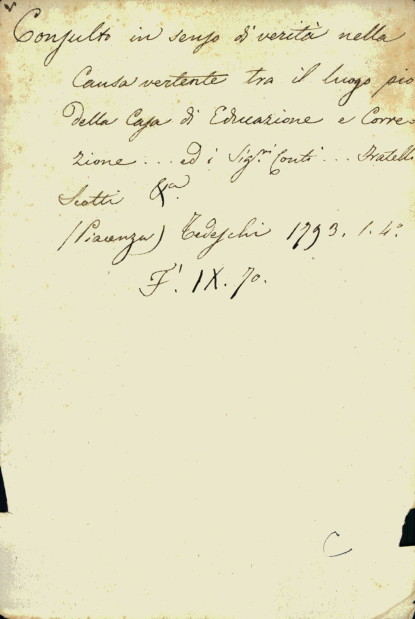 Consulto in senso di verità nella
Causa vertente tra il luogo pio
della Casa di Educazione e Corre-
zione ... ed i Sig.ri Conti ... Fratelli
Scotti &a.
(Piacenza) Tedeschi 1793. 1. 4°
F! IX. 70.
C